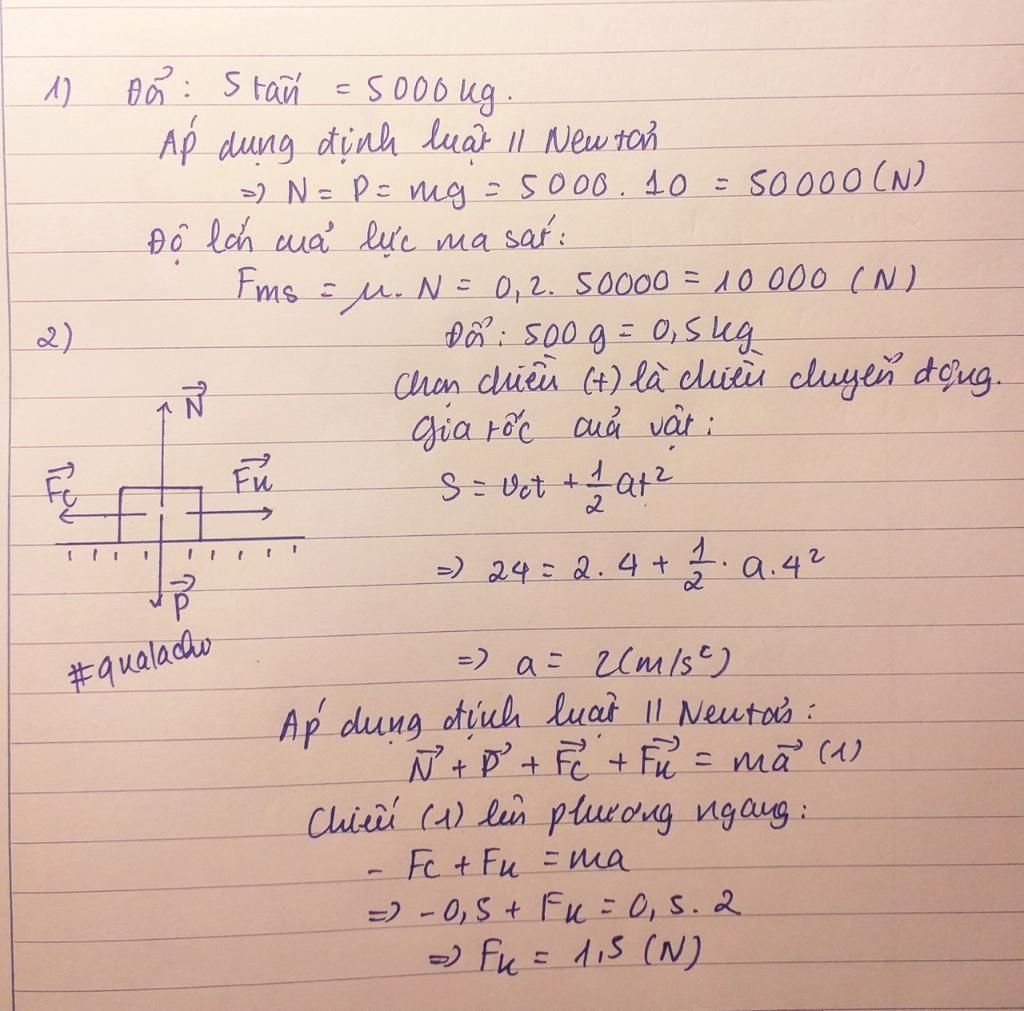 1) Đổi: 5 tấn = 5000 kg.
Áp dụng định luật II Newton
=> N = P = mg = 5000 . 10 = 50000 (N)
Độ lớn của lực ma sát:
Fms = μ. N = 0,2. 50000 = 10 000 (N)
2) Đổi: 500 g = 0,5 kg
Chọn chiều (+) là chiều chuyển động.
Gia tốc của vật:
S = v₀t + 1/2 at²
=> 24 = 2. 4 + 1/2 . a. 4²
=> a = 2 (m/s²)
N⃗
F⃗c
F⃗k
P⃗
#qualacho
Áp dụng định luật II Newton:
N⃗ + P⃗ + F⃗c + F⃗k = ma⃗ (1)
Chiếu (1) lên phương ngang:
- Fc + Fk = ma
=> - 0,5 + Fk = 0,5. 2
=> Fk = 1,5 (N)